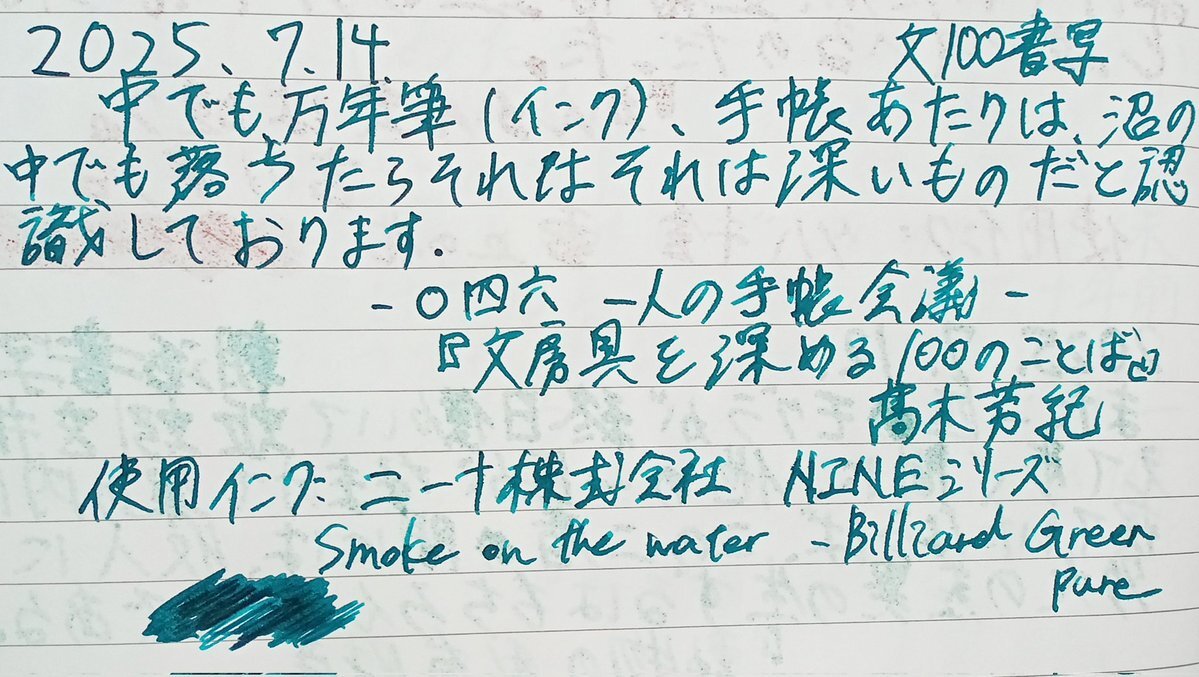 2025、7.14.
文100書写
中でも万年筆(インク)、手帳あたりは、沼の
中でも落ちたらそれはそれは深いものだと認
識しております.
-〇四六 一人の手帳会議-
『文房具を深める100のことば』
髙木芳紀
使用インク:ニーナ株式会社 NINEシリーズ
Smoke on the water - Billiard Green
Pure